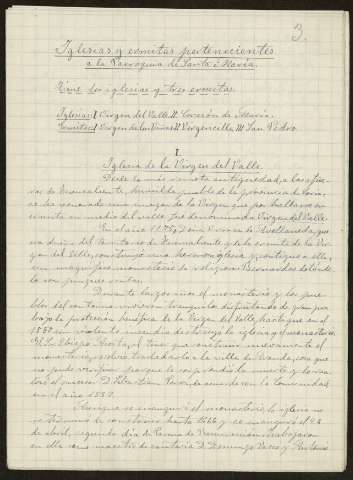 3.
Iglesias y ermitas pertenecientes
a la Parroquia de Santa María.
Tiene dos iglesias y tres ermitas.
Iglesias I Virgen del Valle II Corazón de María.
Ermitas I Virgen de las Viñas II Virgencilla III San Pedro.
I
Iglesia de la Virgen del Valle.
Desde la más remota antigüedad, a las afue-
ras de Fuencaliente, humilde pueblo de la provincia de
se ha venerado una imagen de la Virgen que por hallarse su
ermita en medio del valle fue denominada Virgen del Valle.
En el año 1175, Don de Avellaneda, que
era dueño del territorio de Fuencaliente y de la ermita de la Vir-
gen del Valle, construyó una hermosa iglesia y contiguo a ella,
un magnífico monasterio de religiosas Bernardas dotándo-
lo con pingües rentas.
Durante largos años el monasterio y los pue-
blos del contorno vivieron tranquilos disfrutando de gran
de la protección benéfica de la Virgen del Valle, hasta que en el
un violento incendio destruyó la iglesia y el monasterio.
El Sr. Obispo Acosta, al tener que construir nuevamente el
monasterio, resolvió trasladarlo a la villa de Aranda, cosa que
no pudo verificar porque le sorprendió la muerte y lo rea-
lizó el sucesor D. Sebastián Perez de acuerdo con la Comunidad
en el año
Aunque se inauguró el monasterio, la iglesia no
se terminó de construir hasta y se inauguró el 24
de abril, segundo día de Pascua de Resurrección; trabajaron
en ella como maestros de cantería D. Domingo y Antonio